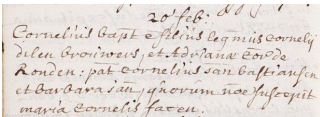 20 feb:
Cornelius bapt. e filius legmis Cornelij
dilen brouwers, et Adrianæ Cor: de
Ronden: pat Cornelius Jan bastiaensen
et barbara Jan, quorum noe suscepit
maria Cornelis